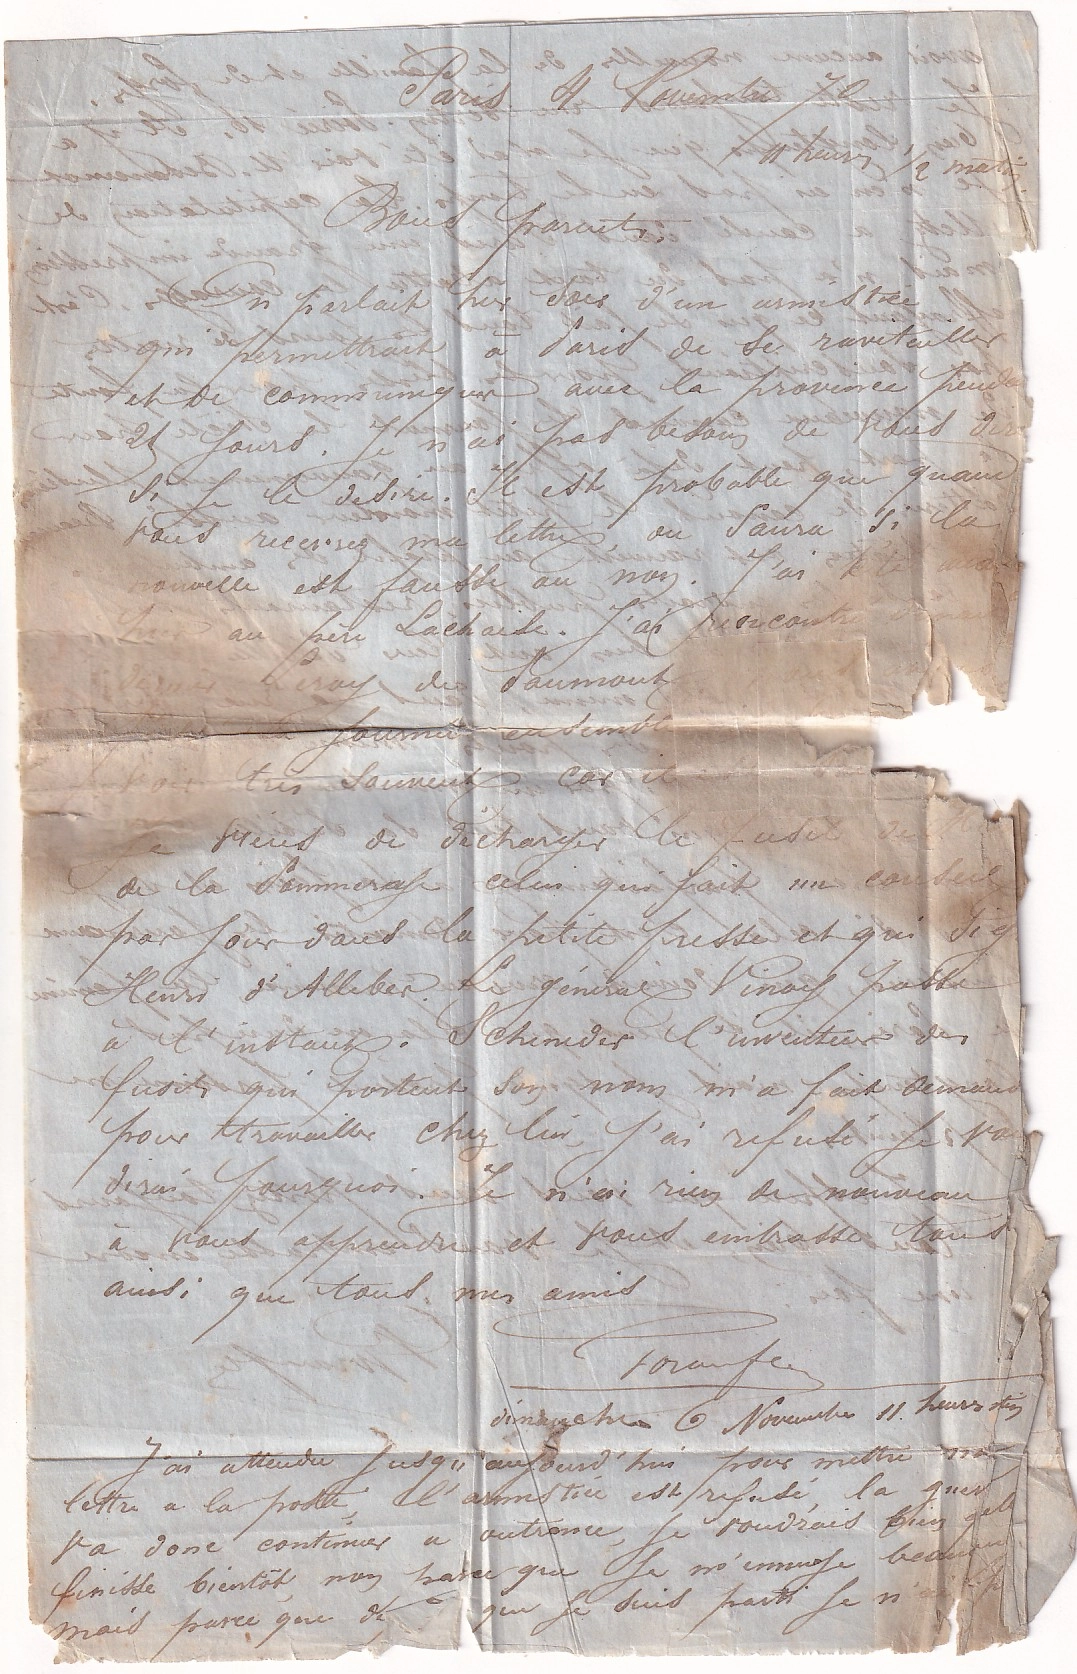 Paris 4 Novembre 70
11 heures 1/2 matin
Bons parents.
On parlait hier soir d'un armistice
qui permettrait à Paris de se ravitailler
et de communiquer avec la province penda
25 jours. Je n'ai pas besoin de vous dir
si je le désire. Il est probable que quand
vous recevrez ma lettre, on saura si la
nouvelle est fausse ou non. J'ai été
hier au père Lachaise. J'ai rencontré
Leroy de
journée ensemble
voir très souvent car il
Je viens de décharger le fusil de
de la Pommeraye celui qui fait un conseil
par jour dans la petite presse et qui sig
Henri d'Alleber. Le général Vinoy passe
à l'instant. Schneider l'inventeur des
fusils qui portent son nom m'a fait deman
pour travailler chez lui, j'ai refusé je vou
dirai pourquoi. Je n'ai rien de nouveau
à vous apprendre et vous embrasse tous
ainsi que tous mes amis
dimanche 6 Novembre 11 heures
J'ai attendu jusqu'aujourd'hui pour mettre ma
lettre a la poste, l'armistice est refusé, la guer
va donc continuer a outrance, je voudrais bien
finisse bientôt, non parce que je m'ennuye beaucou
mais parce que de que je suis parti je n'ai p